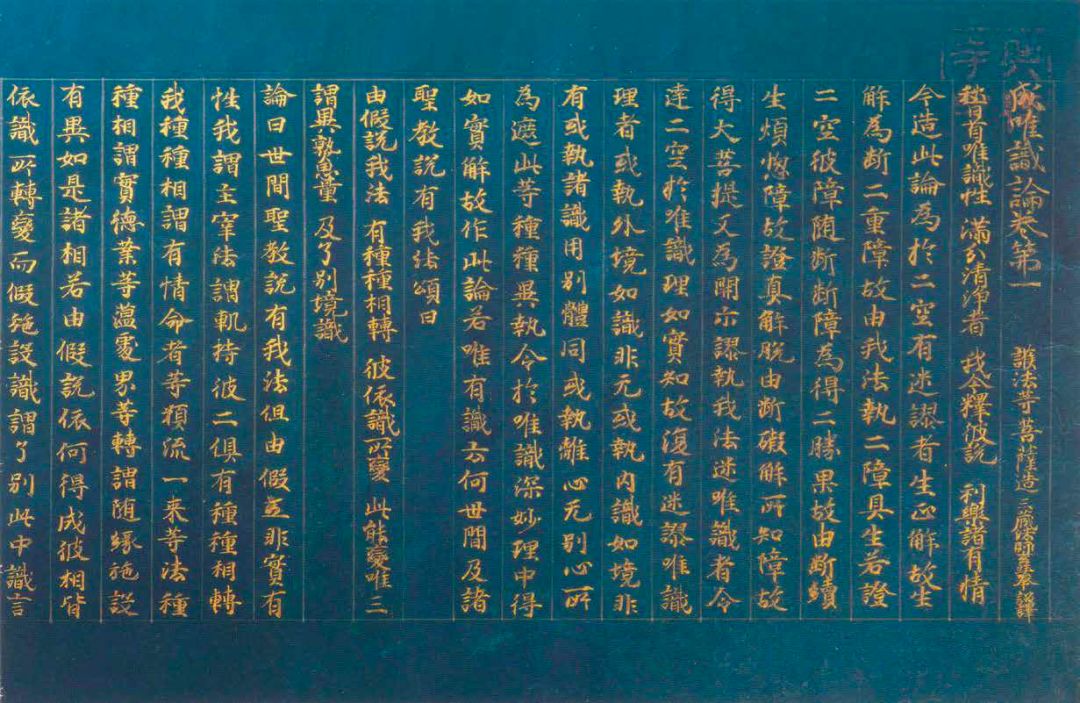 成唯識論卷第一 護法等菩薩造 三藏法師玄奘奉 詔譯
稽首唯識性 滿分清淨者 我今釋彼說 利樂諸有情
今造此論為於二空有迷謬者生正解故生
解為断二重障故由我法執二障具生若證
二空彼障随断断障為得二勝果故由断續
生煩惱障故證真解脫由断礙解所知障故
得大菩提又為開示謬執我法迷唯識者令
達二空於唯識理如實知故復有迷謬唯識
理者或執外境如識非无或執內識如境非
有或執諸識用別體同或執離心无別心所
為遮此等種種異執令於唯識深妙理中得
如實解故作此論若唯有識云何世間及諸
聖教說有我法頌曰
由假說我法 有種種相轉 彼依識所變 此能變唯三
謂異熟思量 及了別境識
論曰世間聖教說有我法但由假立非實有
性我謂主宰法謂軌持彼二俱有種種相轉
我種種相謂有情命者等預流一来等法種
種相謂實德業等蘊處界等轉謂随緣施設
有異如是諸相若由假說依何得成彼相皆
依識所轉變而假施設識謂了別此中識言